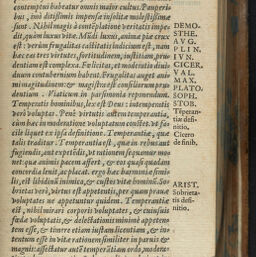 contempsi habeatur omnis maior cultus. Pauperi-
bus, imò ditissimis impensa isolita molestissima
sunt. Nihil magis à contēplatione veritatis impe-
dit, quàm luxus vitæ. Mūdi luxus, animæ piæ crux
est: verùm frugalitas castitatis indicium est, nam
hæc eas tres virtutes, fortitudinem, iustitiam, pru-
dentiam est complexa. Felicitas, et moderatio diui-
duum contubernium habent. Frugalitas auget ani-
mi magitudinem: & magistra est consiliorum pru-
dentium. Viaticum in parsimonia reponendum.
Temperatis hominibus, lex est Deus: intemperatis
verò voluptas. Penè virtutis autem temperantia,
cùm hæc in moderatione voluptatum constet. ve fa-
cile liquet ex ipsa definitione. Temperantiæ, qua
talis traditur. Temperantia est, quæ in rebus aut
fugiendis, aut expetēdis, vt rationem sequamur mo-
net: quæ animis pacem affert, & eos quasi quadam
concordia lenit, ac placat. ergo hæc harmoniæ simi-
lis, est libidini inimica, & custos vitæ hominis. So-
brietas verò, virtus est appetentis, per quam prauæ
voluptates ne appetuntur quidem. Temperantiæ
est, nihil mirari corporis voluptates, & cuiusuis
fœdæ voluptatis, & delectationis minimè appeten-
tem esse, & timere etiam iustam licentiam, & in-
tentum esse in vita rationem similiter in paruis &
magnis: affectatur autē temperātiam ordo, modera-
DEMO-
STHE.
AVG.
PLIN.
IVN.
CICER.
VAL.
MAX.
PLATO.
SOPH.
STOB.
Tēperan-
tiæ defi-
nitio,
Cicero
de finib.
ARIST.
Sobrieta-
tis defi-
nitio.